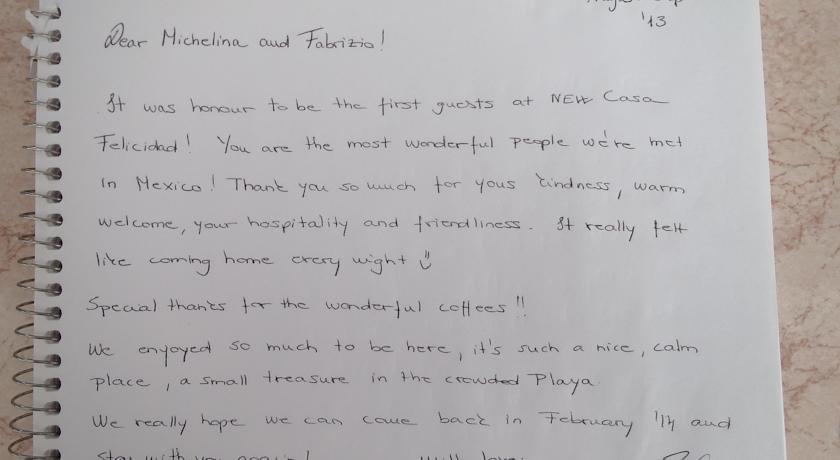 '13
Dear Michelina and Fabrizio!
It was honour to be the first guests at NEW Casa
Felicidad! You are the most wonderful people we're met
in Mexico! Thank you so much for yous kindness, warm
welcome, your hospitality and friendliness. It really felt
like coming home every night
Special thanks for the wonderful coffees!!
We enyoyed so much to be here, it's such a nice, calm
place, a small treasure in the crowded Playa.
We really hope we can come back in February '14 and
stay with you again!